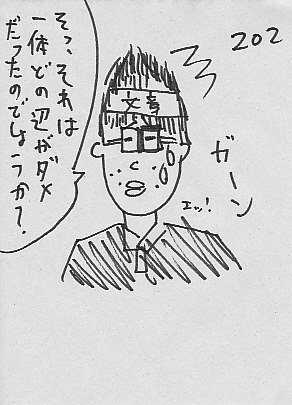 202
そっ、それは
一体どの辺がダメ
だったのでしょうか?
文章
ガーン
エッ!